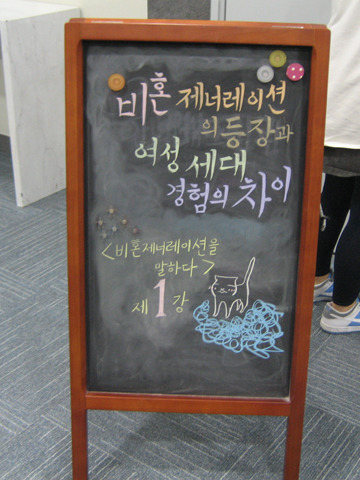 비혼 제너레이션
의 등장과
여성 세대
경험의 차이
<비혼제너레이션을
말하다>
제 1 강